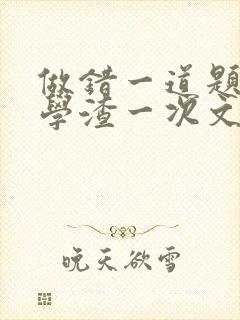 做錯一道題
學渣一次文
晚天欲雪